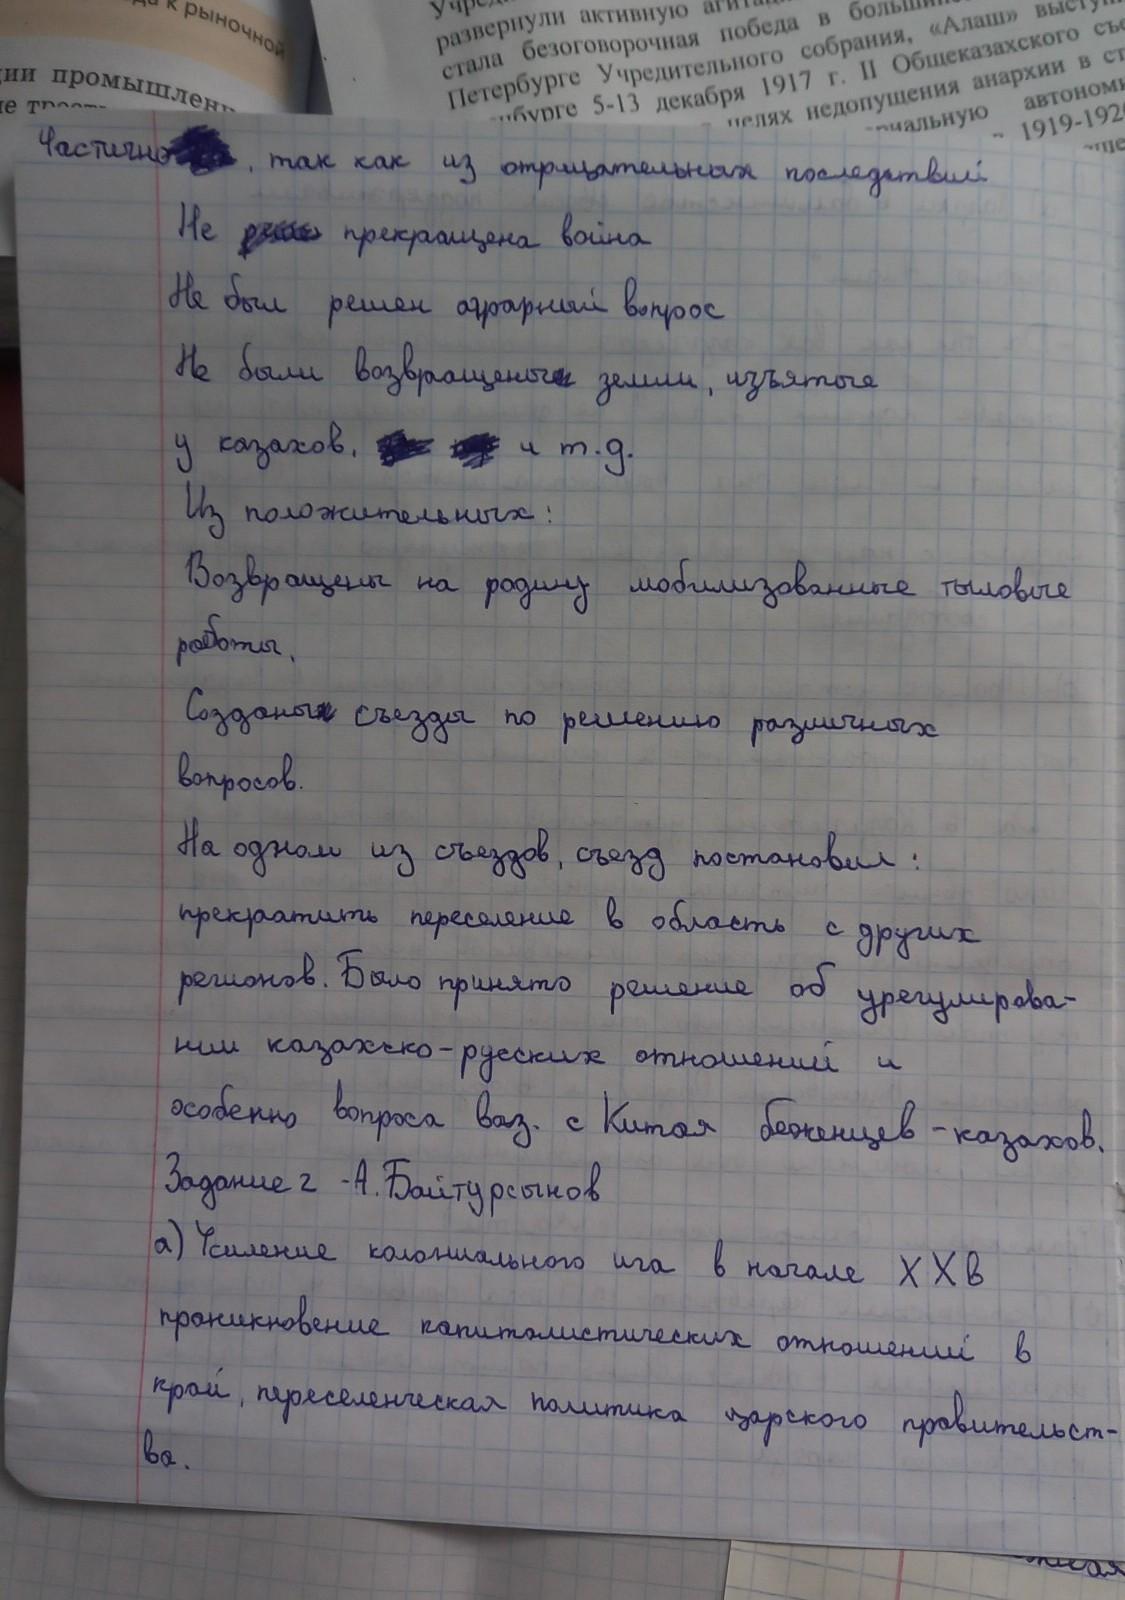 да к рыночной
ции промышленн
развернули активную агита
стала безоговорочная победа в больши
Петербурге Учредительного собрания, «Алаш» высту
нбурге 5-13 декабря 1917 г. II Общеказахского съе
целях недопущения анархии в ст
риальную автоном
1919-192
Частично, так как из отрицательных последствий
Не прекращена война
Не был решен аграрный вопрос
Не были возвращены земли, изъятые
у казахов, и т.д.
Из положительных:
Возвращены на родину мобилизованные тыловые
работы.
Созданы съезды по решению различных
вопросов.
На одном из съездов, съезд постановил:
прекратить переселение в область с других
регионов. Было принято решение об урегулирова-
нии казахско-русских отношений и
особенно вопроса воз. с Китая беженцев-казахов.
Задание 2 -А. Байтурсынов
а) Усиление колониального ига в начале XXв
проникновение капиталистических отношений в
край, переселенческая политика царского правительст-
ва.